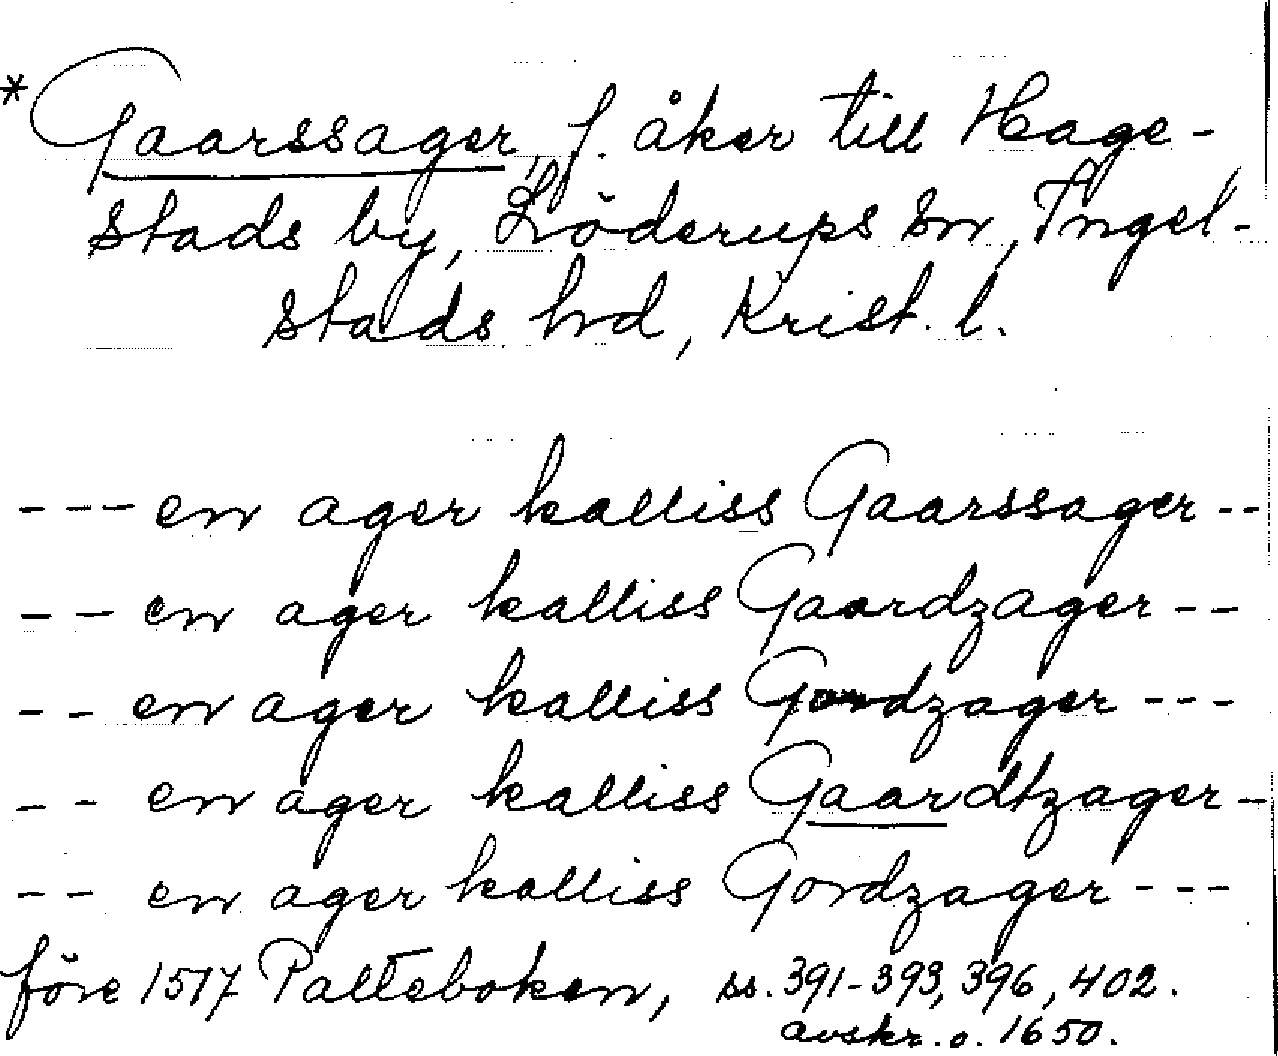 * Gaarssager, f. åker till Hage-
stads by, Löderups sn, Ingel-
stads hrd, Krist. l.
--- en ager kalliss Gaarssager --
-- en ager kalliss Gaardzager --
-- en ager kalliss Gordzager ---
-- en ager kalliss Gaardtzager -
-- en ager kalliss Gordzager ---
före 1517 Palteboken, ss. 391-393, 396, 402.
avskr. o. 1650.